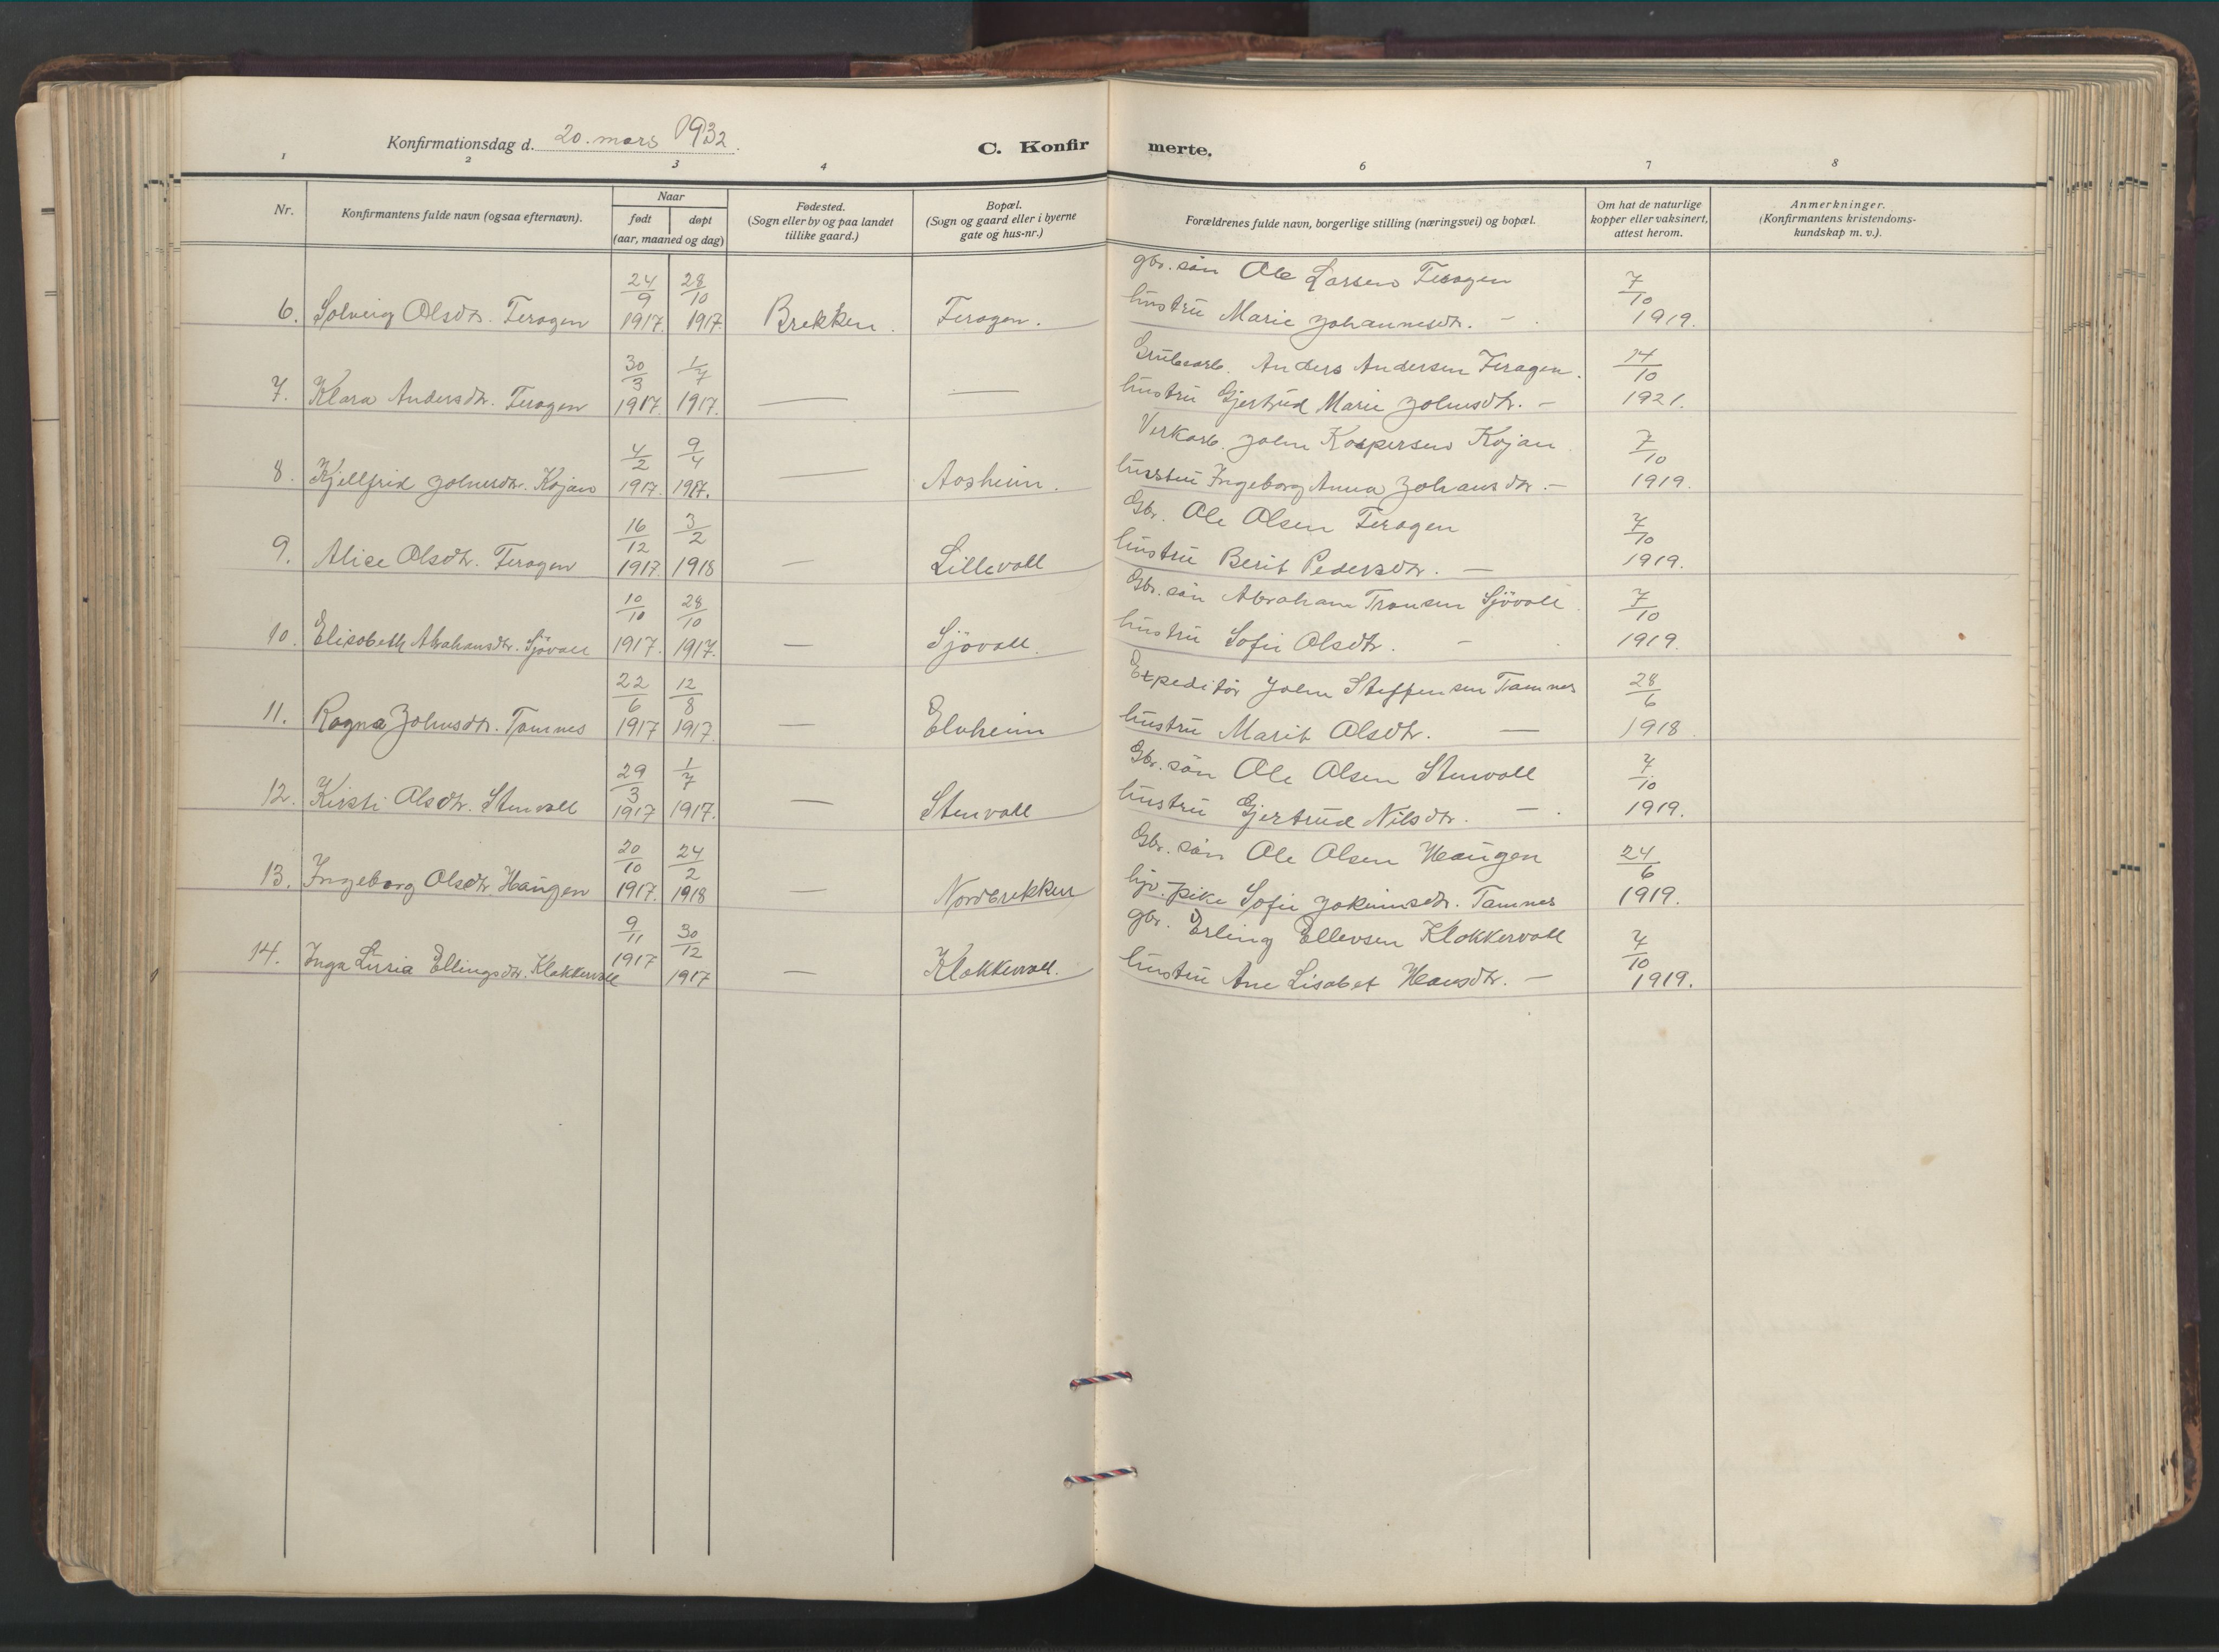 Konfirmationsdag d. 20. mars 1932.
C. Konfirmerte.
1 2 3 4 6 7 8
Nr.
Konfirmantens fulde navn (ogsaa efternavn).
Naar
født
døpt
(aar, maaned og dag)
Fødested.
(Sogn eller by og paa landet
tillike gaard.)
Bopæl.
(Sogn og gaard eller i byerne
gate og hus-nr.)
Forældrenes fulde navn, borgerlige stilling (næringsvei) og bopæl.
Om hat de naturlige
kopper eller vaksinert,
attest herom.
Anmerkninger.
(Konfirmantens kristendoms-
kundskap m. v.).
6. Solveig Olsdtr. Feragen 24/9 1917. 28/10 1917. Brekken. Feragen.
gbr. sön Ole Larsen Feragen
hustru Marie Johannesdtr. - .
7/10 1919.
7. Klara Andersdtr. Feragen 30/3 1917. 1/7 1917. — —
Grubearb. Anders Andersen Feragen.
hustru Gjertrud Marie Johnsdtr. -
14/10 1921.
8. Kjellfrid Johnsdtr. Kojan 4/2 1917. 9/4 1917. — Aosheim.
Verkarb. John Kaspersen Kojan.
hustru Ingeborg Anna Johansdtr. -
7/10 1919.
9. Alise Olsdtr. Feragen 16/12 1917. 3/2 1918 — Lillevoll
Gbr. Ole Olsen Feragen
hustru Berit Pedersdtr. —
7/10 1919.
10. Elisabeth Abrahamsdtr. Sjövoll 10/10 1917. 28/10 1917. — Sjövoll.
Gbr. sön Abraham Tronsen Sjövoll.
hustru Sofie Olsdtr. - .
7/10 1919.
11. Ragna Johnsdtr. Tamnes 22/6 1917 12/8 1917. — Elvheim
Expeditör John Steffensen Tamnes
hustru Marit Olsdtr. —
28/6 1918.
12. Kirsti Olsdtr. Stenvoll 29/3 1917 1/7 1917. — Stenvoll
Gbr. sön Ole Olsen Stenvoll
hustru Gjertrud Nilsdtr. - .
7/10 1919.
13. Ingeborg Olsdtr. Haugen 20/10 1917. 24/2 1918 — Nordbrekken
Gbr. sön Ole Olsen Haugen
hjv. pike Sofie Jokumsdtr. Tamnes
24/6 1919.
14. Inga Luria Ellingsdtr. Klokkervoll 9/11 1917 30/12 1917 — Klokkervoll.
gbr. Erling Ellevsen Klokkervoll
hustru Ane Lisabet Hansdtr. -
7/10 1919.